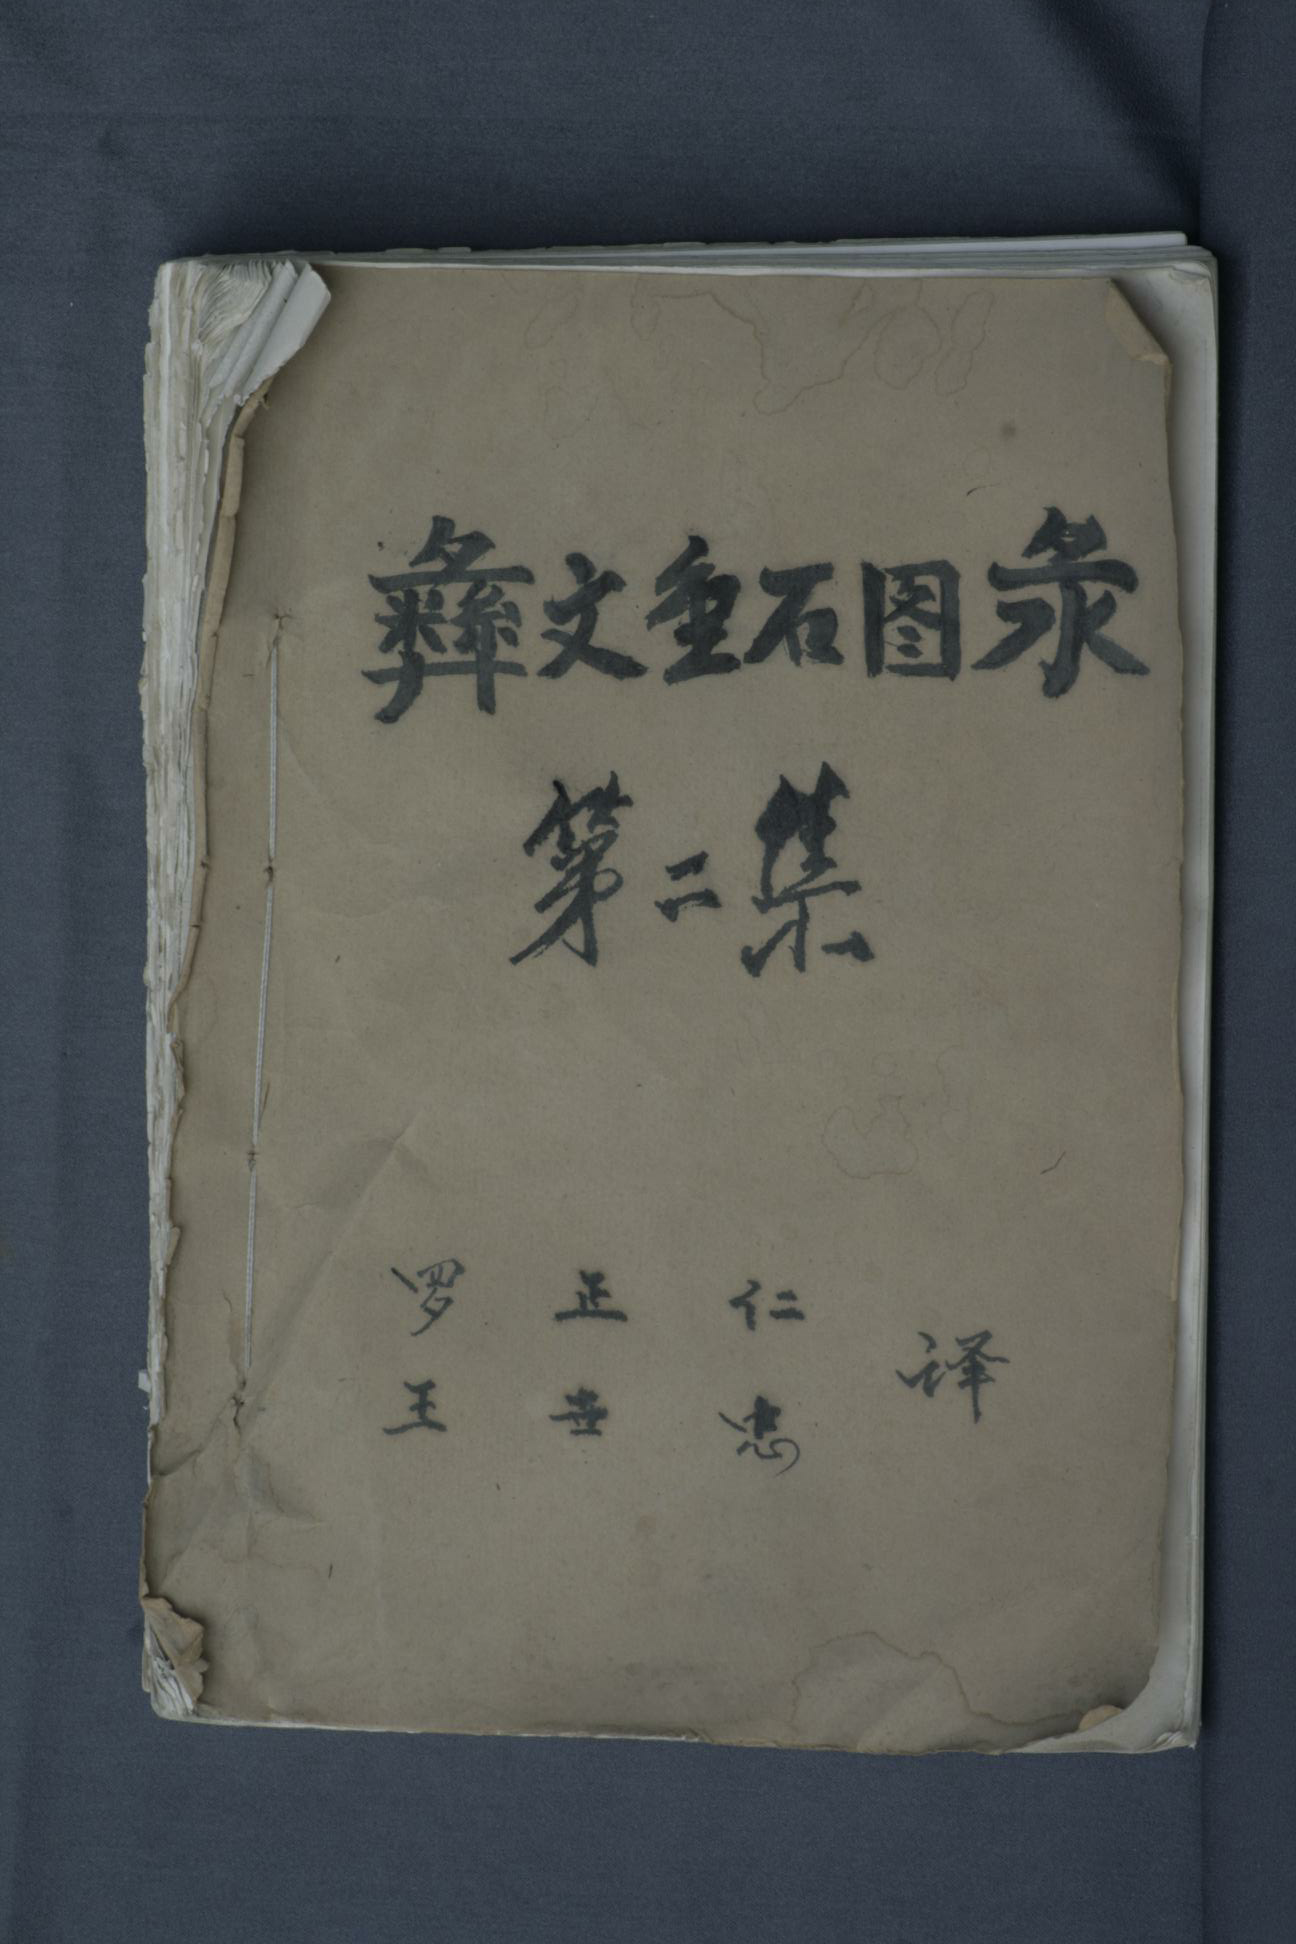 彝文金石图录
第二集
罗正仁
王世忠
译